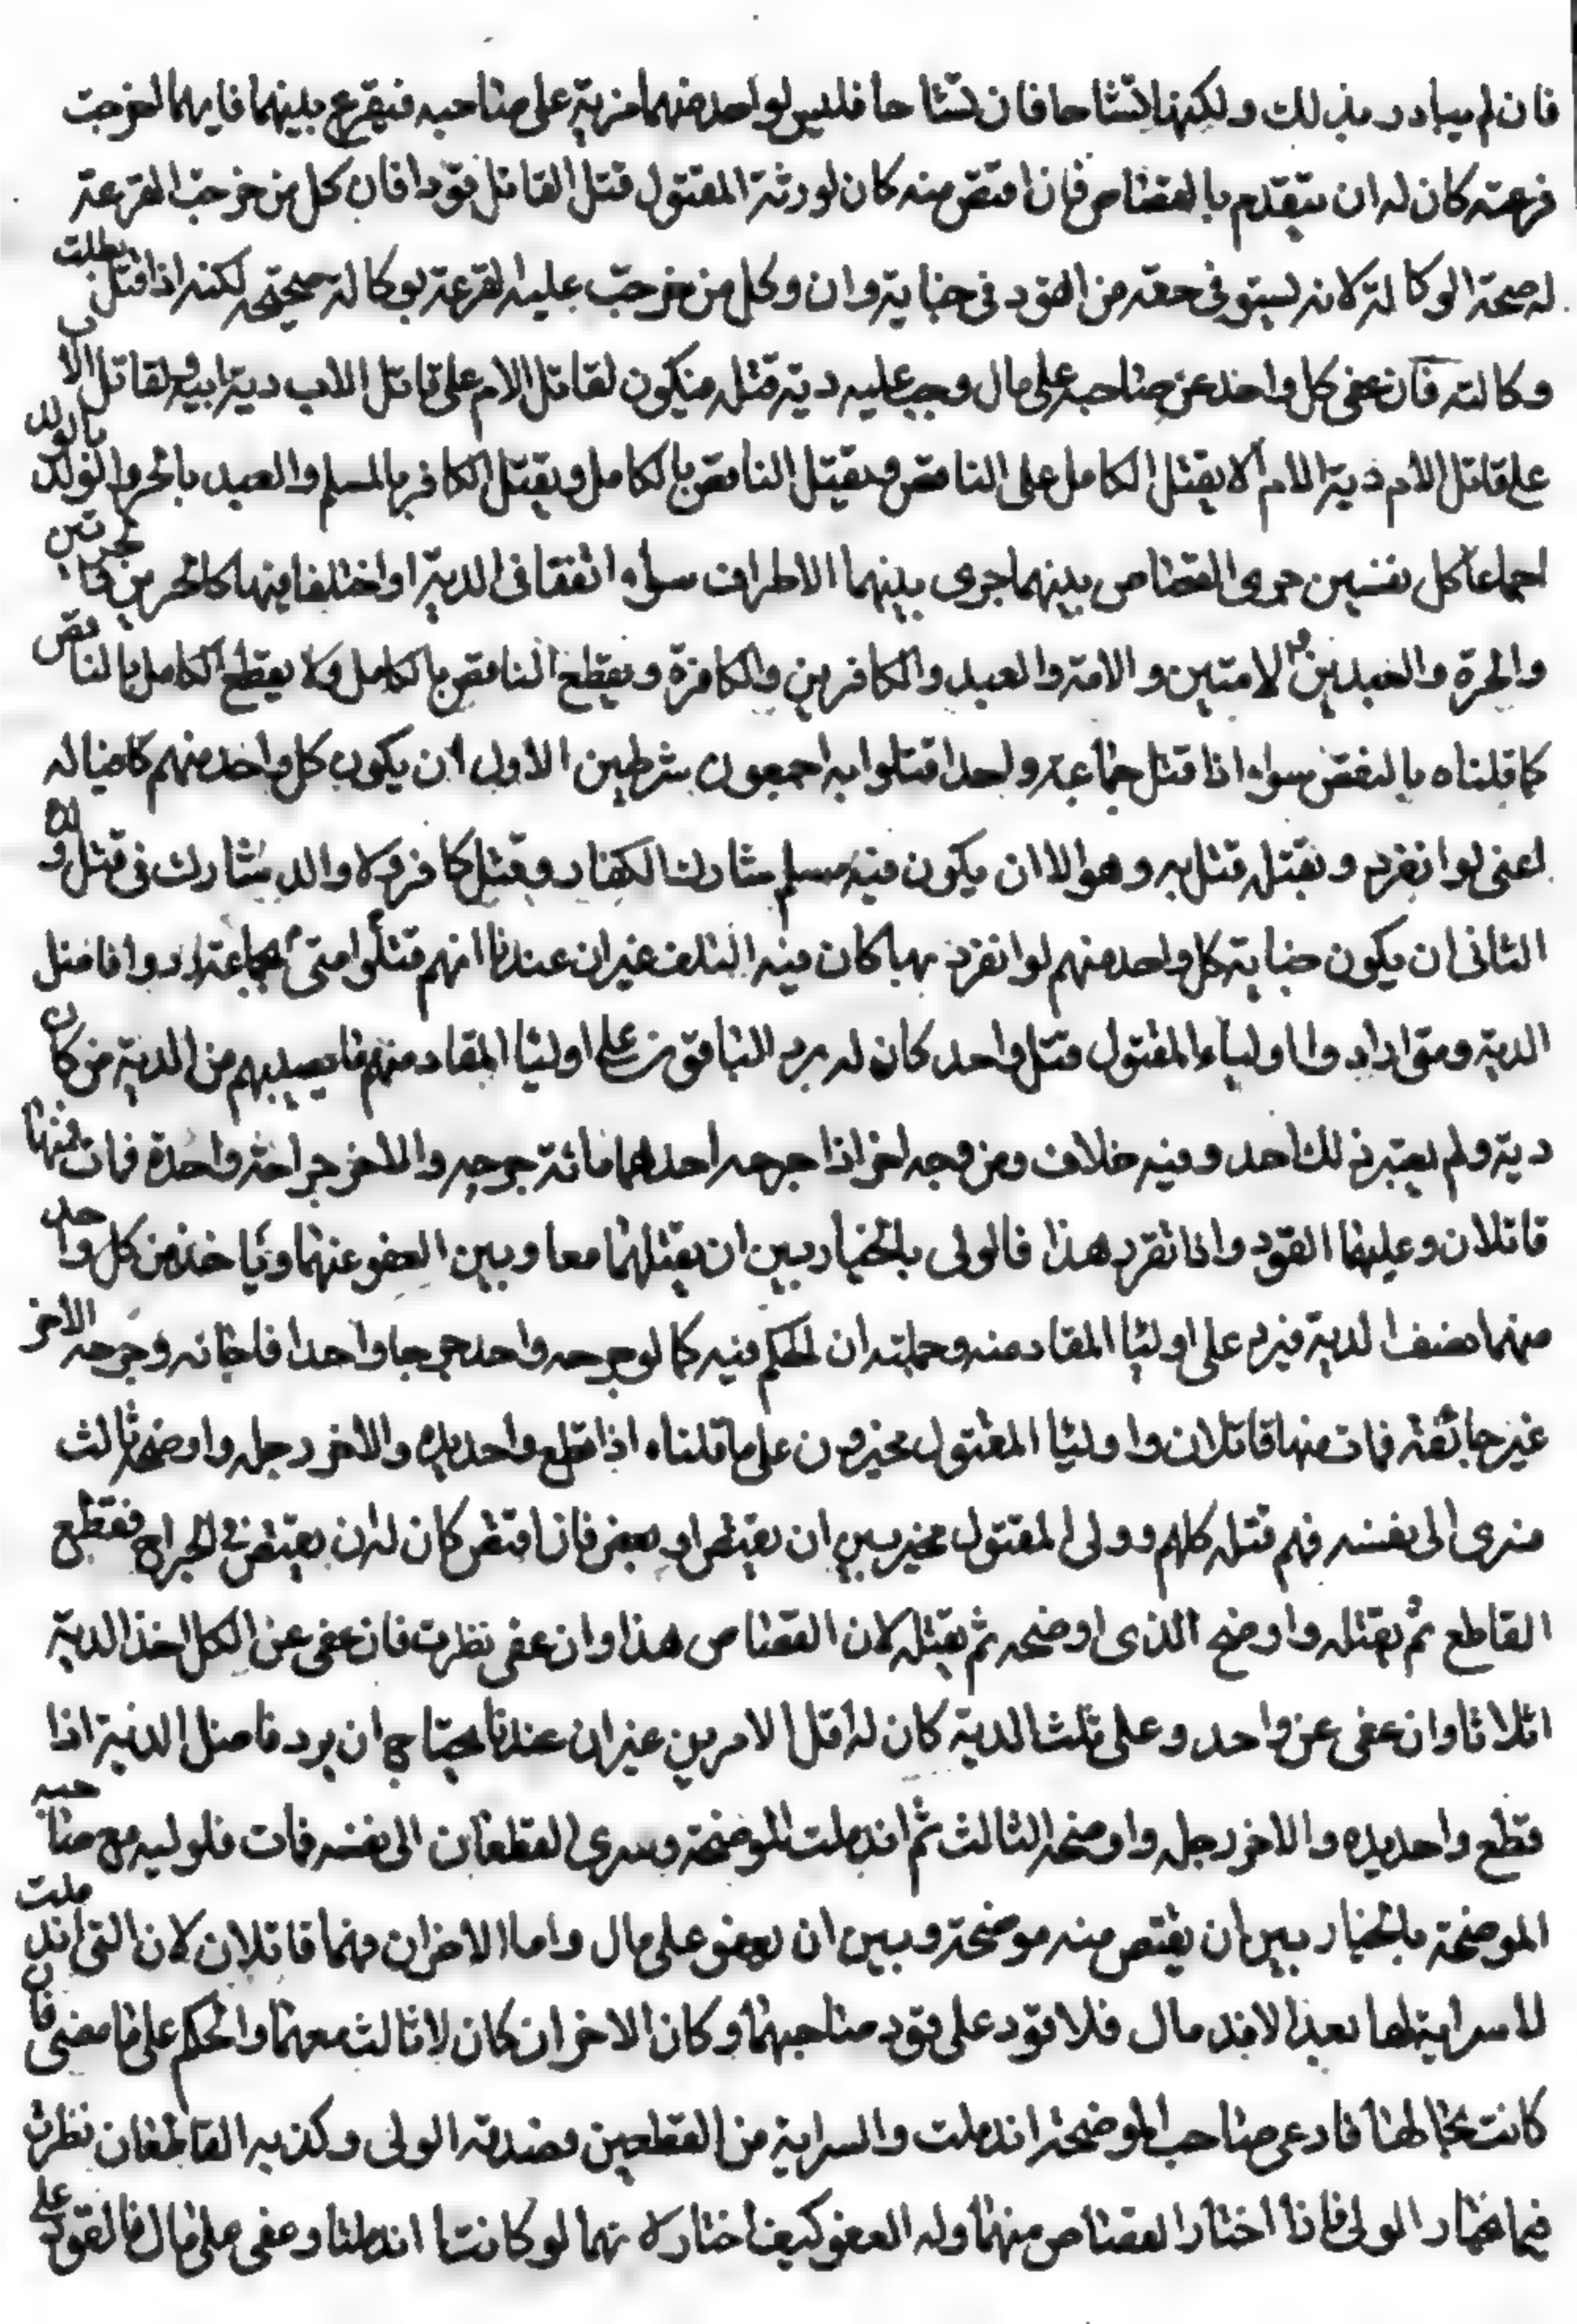 فان لم يبادر بذلك ولكنهما تشاحا فان تشاحا فليس لواحد منهما مزية على صاحبه فيقرع بينهما فايهما خرجت
قرعته كان له ان يتقدم بالقصاص فان اقتص منه كان لورثة المقتول قتل القاتل قودا فان وكل من خرجت القرعة
له صحة الوكالة لانه يستوفى حقه من القود فى حنايته وان وكل من خرجت عليه القرعة بوكالة صحيحة لكنه اذا قتل بطلت
وكالته فان عفى كل واحد عن صاحبه على مال وجب عليه دية قتله فيكون لقاتل الام على قاتل الاب دية ابيه ولقاتل الاب
على قاتل الام دية الام لا يقتل الكامل على الناقص ويقتل الناقص بالكامل ويقتل الكافر بالمسلم والعبيد بالحر والولد بالولد
اجماعا كل نفسين جرى القصاص بينهما جرى بينهما الاطراف سواء اتفقا فى الدية او اختلفا فيها كالحرين والحرتين
والحرة والعبدين والامتين والامة والعبد والكافرين والكافرة ويقطع الناقص بالكامل ولا يقطع الكامل بالناقص
كما قلناه بالنفس سواء اذا قتل جماعة واحدا قتلوا به اجمعون بشرطين الاول ان يكون كل واحد منهم كافيا له
اعنى لو انفرد ويقتله قتل به وهو الا ان يكون فيه مسلم مشارك الكفار وقتل كافر ولا والد يشارك فى قتل ولده
الثانى ان يكون جناية كل واحد منهم لو انفرد بها كان فيه التلف غير ان عندنا انهم قتلوا متى جماعة ردوا فاضل
الدية ومتى اراد اولياء المقتول قتل واحد كان له يرد الباقون على اوليا المقاد منهم ما يصيبهم من الدية من كان
دية ولم يعتبر ذلك احد وفيه خلاف ومن وجه اخر اذا جرحه احدهما مائة جرحه والاخر جراحة واحدة فمات منها
قاتلان وعليهما القود واذا تقرر هذا فالولى بالخيار بين ان يقتلهما معا وبين العفو عنهما وياخذ من كل واحد
منهما نصف الدية فيرد على اوليا المقاد منه وجملته ان الحكم فيه كما لو جرحه واحد جرحا واحدا فاجافه وجرحه الاخر
غير جائفة فمات منها قاتلان واوليا المقتول مخيرون على ما قلناه اذا قطع واحد يده والاخر رجله واوضحه ثالث
فسرى الى نفسه فهم قتلة كلهم وولى المقتول مخير بين ان يقتص او يعفو فان اقتص كان له ان يقتص فى الجراح فقطع
القاطع ثم يقتله واوضح الذى اوضحه ثم يقتله لان القصاص هذا وان عفى نظرت فان عفى عن الكل اخذ الدية
اثلاثا وان عفى عن واحد وعلى ثلث الدية كان له اقل الامرين غير ان عندنا يحتاج ان يرد فاضل الدية اذا
قطع واحد يده والاخر رجله واوضحه الثالث ثم اندملت الموضحة وسرى القطعان الى نفسه فمات فلوليه مع صاحبه
الموضحة بالخيار بين ان يقتص منه موضحة وبين ان يعفو على مال واما الاخران فهما قاتلان لان التى اندملت
لا سراية لها بعد الاندمال فلا قود على قود صاحبهما وكان الاخران كان لا ثالث معهما والحكم على ما مضى فان
كانت بحالها فادعى صاحب الموضحة اندملت والسراية من القطعين فصدقه الولى وكذبه القاطعان نظرت
فيما يختار الولى فاذا اختار القصاص منهما وله العفو كيف اختاره نهما لو كانتا اندملتا وعفى على مال فالقود على